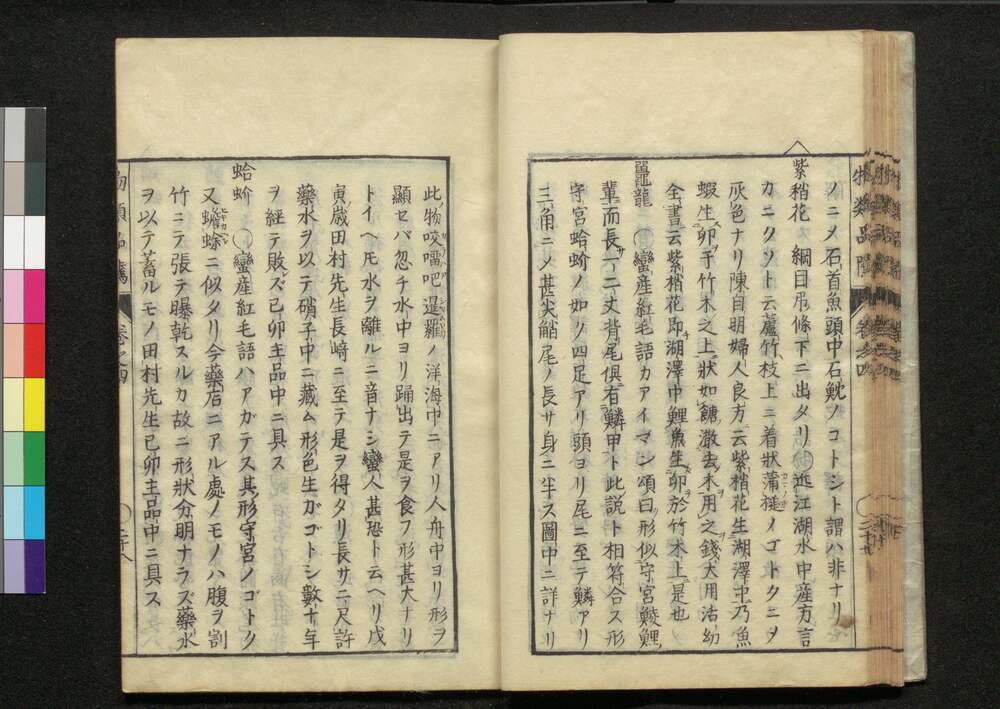 ノニメ石首魚頭中石魫ノコトシト謂ハ非ナリ
紫稍花 綱目弔條下ニ出タリ 近江湖水中産方言
カニクソト云蘆竹枝上ニ着狀蒲槌ノゴトクニメ
灰色ナリ陳自明婦人良方云紫稍花生湖澤中乃魚
蝦生卵于竹木之上狀如餹澈去木用之錢大用活幼
全書云紫梢花即湖澤中鯉魚生卵於竹木上是也
鼉龍 ○蠻産紅毛語カアイマン頌曰形似守宮鯪鯉
輩而長一二丈背尾俱有鱗甲ト此説ト相符合ス形
守宮蛤蚧ノ如ノ四足アリ頭ヨリ尾ニ至テ鱗アリ
三角ニメ甚尖觜尾ノ長サ身ニ半ス圖中ニ詳ナリ
此物咬𠺕吧暹羅ノ洋海中ニアリ人舟中ヨリ形ヲ
顯セバ忽チ水中ヨリ踊出テ是ヲ食フ形甚大ナリ
トイヘ𪜈水ヲ離ルニ音ナシ蠻人甚恐ト云ヘリ戊
寅歲田村先生長崎ニ至テ是ヲ得タリ長サ二尺許
藥水ヲ以テ硝子中ニ藏ム形色生ガゴトシ數十年
ヲ経テ敗ズ己卯主品中ニ具ス
蛤蚧 ○蠻産紅毛語ハアガテス其形守宮ノゴトク
又蟾蜍ニ似タリ今藥店ニアル處ノモノハ腹ヲ割
竹ニテ張テ曝乾スルカ故ニ形狀分明ナラズ藥水
ヲ以テ蓄ルモノ田村先生己卯主品中ニ具ス